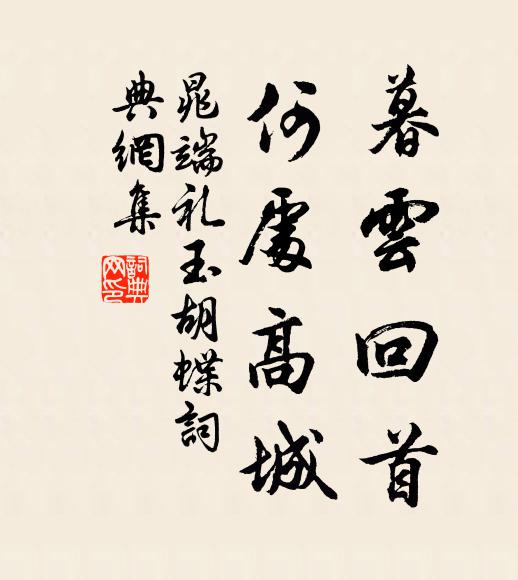 暮雲回首
何處高城
晁端礼玉胡蝶詞
典網集
詞典網印